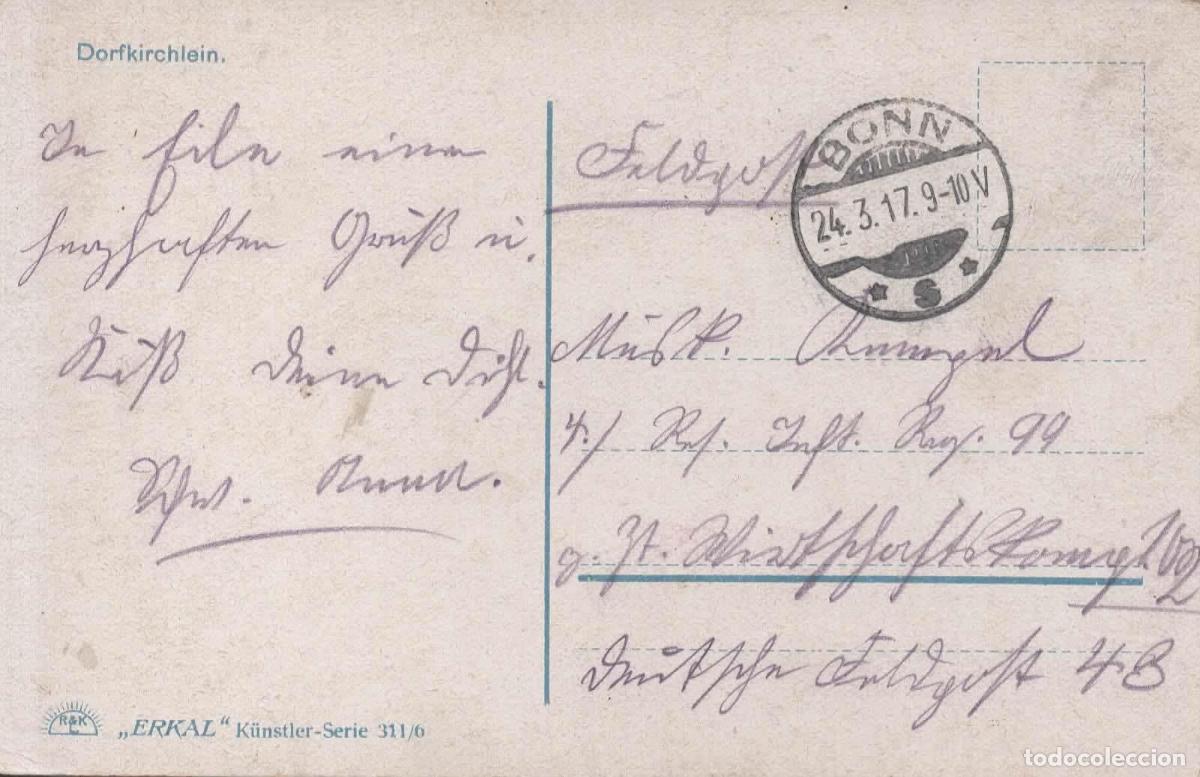 Dorfkirchlein.
In Eile einen
herzhaften Gruß u.
Kuß Deine Dchl.
Schw. Anna.
Feldpost
BONN
24.3.17.9-10V
* S *
Musk. Rampel
4./ Res. Inft. Reg. 99
z. Zt. Wirtschaftskomp.
Deutsche Feldpost 48
R&K
L
„ERKAL“ Künstler-Serie 311/6
todocoleccion